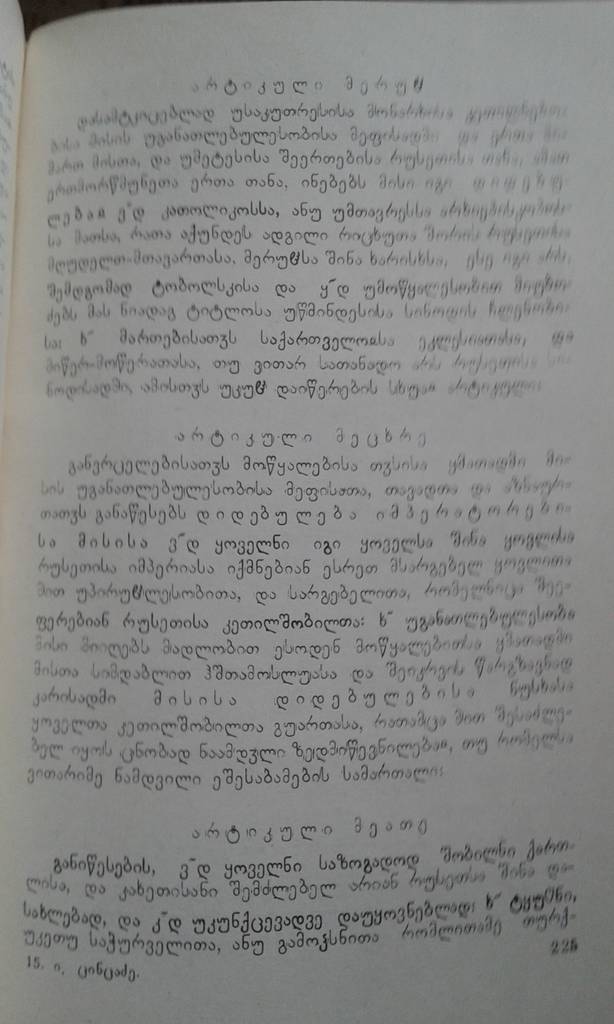 არტიკული მერუჱ
დასამტკიცებლად უსაკუთრესისა მონარხისა
მისის უგანათლებულესობისა მეფისადმი და ერთა
მართ მისთა, და უმეტესისა შეერთებისა რუსეთისა თანა,
ერთმორწმუნეთა ერთა თანა, ინებებს მისი იგი
კათოლიკოსსა, ანუ უმთავრესსა
სა მათსა, რათა აქუნდეს ადგილი რიცხუთა შორის რუსეთისა
მღუდელთ-მთავართასა, მერუჱსა შინა ხარისხსა, ესე იგი არს,
შემდგომად ტობოლსკისა და ყ˜დ უმოწყალესობით
ძებს მას ნიადაგ ტიტლოსა უწმინდესისა სინოდის
სა: ხ˜ მართებისათჳს საქართველოჲსა ეკლესიათასა, და
მიწერ-მოწერათასა, თუ ვითარ სათანადო არს რუსეთისა სი-
ნოდისადმი, ამისთჳს უკუჱ დაიწერების სხუაჲ არტიკული:
არტიკული მეცხრე
განვრცელებისათჳს მოწყალებისა თჳსისა ყმათადმი მი-
სის უგანათლებულესობისა მეფისათა, თავადთა და აზნაურ-
თათჳს განაწესებს დიდებულება იმპერატორები-
სა მისისა ვ˜დ ყოველნი იგი ყოველსა შინა ყოვლისა
რუსეთისა იმპერიასა იქმნებიან ესრეთ მსარგებელ ყოვლითა
მით უპირუჱლესობითა, და სარგებელითა, რომელნიცა შეე-
ფერებიან რუსეთისა კეთილშობილთა: ხ˜ უგანათლებულესობა
მისი მიიღებს მადლობით ესოდენ მოწყალებითსა ყმათადმი
მისთა სიმდაბლით ჰშთამოსლუასა და შეიკრეის წარგზავნად
კარისადმი მისისა დიდებულებისა ნუსხასა
ყოველთა კეთილშობილთა გუართასა, რათამცა მით შესაძლე-
ბელ იყოს ცნობად ნაამდჳლი ზედმიწევნილებაჲ, თუ რომელსა
ვითარიმე ნამდვილი ეშესაბამების სამართალი:
არტიკული მეათე
განიწესების, ვ˜დ ყოველნი საზოგადოდ შობილნი ქართ-
ლისა, და კახეთისანი შემძლებელ არიან რუსეთსა შინა და-
სახლებად, და კ˜დ უკუნქცევადვე დაუყოვნებლად: ხ˜ ტყუჱნი,
უკეთუ საჭურველითა, ანუ გამოჴსნითა რომლითამე თურქ-
15. ი. ცინცაძე.
225